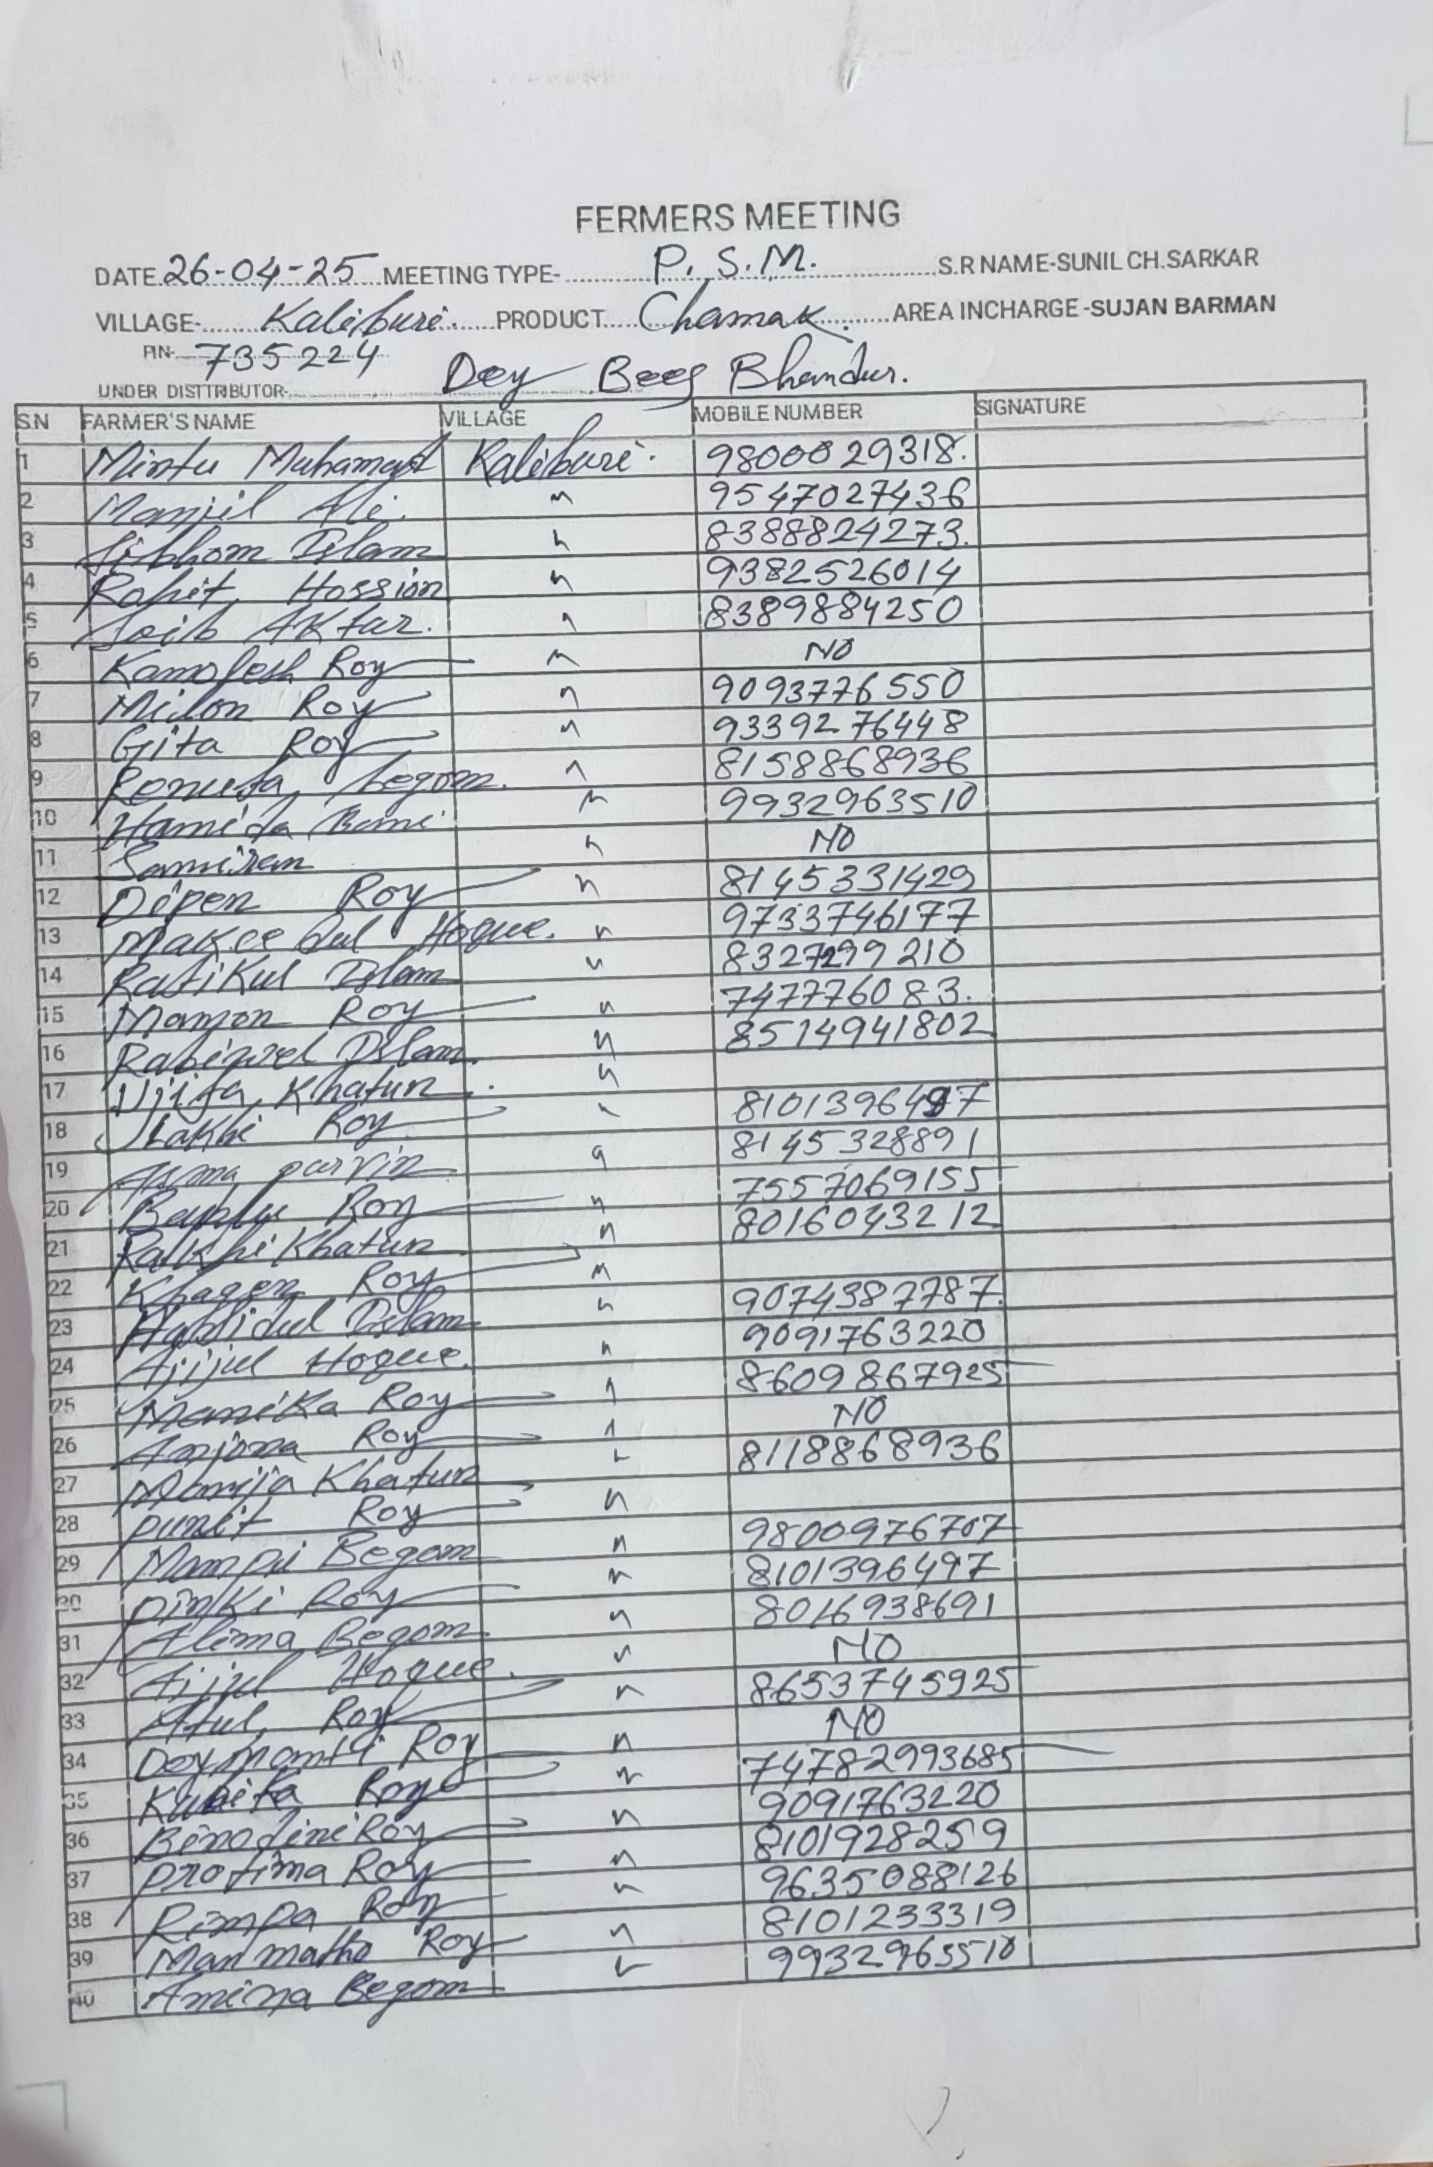 FERMERS MEETING
DATE 26-04-25 MEETING TYPE- P.S.M. S.R NAME-SUNIL CH.SARKAR
VILLAGE- Kaliburi. PRODUCT Chamak. AREA INCHARGE -SUJAN BARMAN
PIN- 735224
UNDER DISTTRIBUTOR- Dey Beej Bhandur.
S.N FARMER'S NAME VILLAGE MOBILE NUMBER SIGNATURE
1 Mintu Muhamad Kaliburi. 9800029318.
2 Manjil Ali. " 9547027436
3 Islam " 8388824273.
4 Rohit Hossion " 9382526014
5 Soib Aktar. " 8389884250
6 Kamolesh Roy " NO
7 Milon Roy " 9093776550
8 Gita Roy " 9339276448
9 Begom. " 8158868936
10 Hamida " 9932963510
11 Samiran " NO
12 Dipen Roy " 8145331429
13 Hoque. " 9733746177
14 Rafikul Islam " 8327299210
15 Roy " 747776083.
16 Islam. " 8514941802
17 Khatun "
18 Roy " 8101396497
19 parvin " 8145328891
20 Roy " 7557069155
21 Khatun " 8016043212
22 Khagen Roy "
23 Islam " 9074387787.
24 Ajijul Hoque. " 9091763220
25 Manika Roy " 8609867925
26 Anjona Roy " NO
27 Khatun " 8118868936
28 Roy "
29 Mampi Begom " 9800976707
30 pinki Roy " 8101396497
31 Alima Begom " 8016938691
32 Ajijul Hoque. " NO
33 Atul Roy " 8653745925
34 Doymonti Roy " NO
35 Roy " 74782993685
36 Binodini Roy " 9091763220
37 protima Roy " 8101928259
38 Rimpa Roy " 9635088126
39 Manmatho Roy " 8101233319
40 Amina Begom " 9932965510